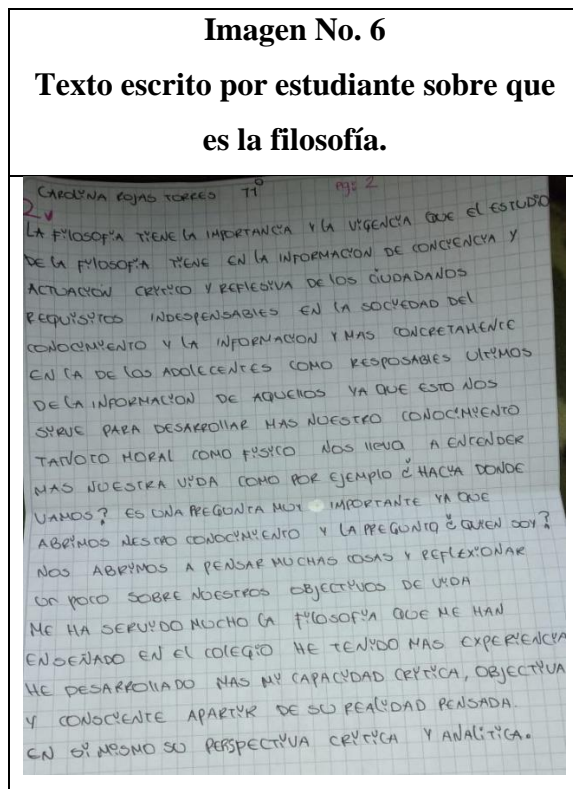 Imagen No. 6
Texto escrito por estudiante sobre que
es la filosofía.
CAROLINA ROJAS TORRES 11° Pg: 2
2.
LA FILOSOFIA TIENE LA IMPORTANCIA Y LA VIGENCIA QUE El ESTUDIO
DE LA FILOSOFIA TIENE EN LA INFORMACION DE CONCIENCIA Y
ACTUACION CRITICO Y REFLESIVA DE LOS CIUDADANOS
REQUISITOS INDESPENSABLES EN LA SOCIEDAD DEL
CONOCIMIENTO Y LA INFORMACION Y MAS CONCRETAMENTE
EN LA DE LOS ADOLECENTES COMO RESPOSABLES ULTIMOS
DE LA INFORMACION DE AQUELLOS YA QUE ESTO NOS
SIRVE PARA DESARROLLAR MAS NUESTRO CONOCIMIENTO
TANOTO MORAL COMO FISICO NOS lleva A ENTENDER
MAS NUESTRA VIDA COMO POR EJEMPLO ¿ HACIA DONDE
VAMOS? ES UNA PREGUNTA MUY IMPORTANTE YA QUE
ABRIMOS NESTRO CONOCIMIENTO Y LA PREGUNTA ¿ QUIEN SOY?
NOS ABRIMOS A PENSAR MUCHAS COSAS Y REFLEXIONAR
UN POCO SOBRE NUESTROS OBJECTIVOS DE VIDA
ME HA SERVIDO MUCHO LA FILOSOFIA QUE ME HAN
ENSEÑADO EN El COLEGIO HE TENIDO MAS EXPERIENCIA
HE DESARROLLADO MAS MI CAPACIDAD CRITICA, OBJECTIVA
Y CONSCIENTE APARTIR DE SU REALIDAD PENSADA.
EN SI MISMO SU PERSPECTIVA CRITICA Y ANALITICA.